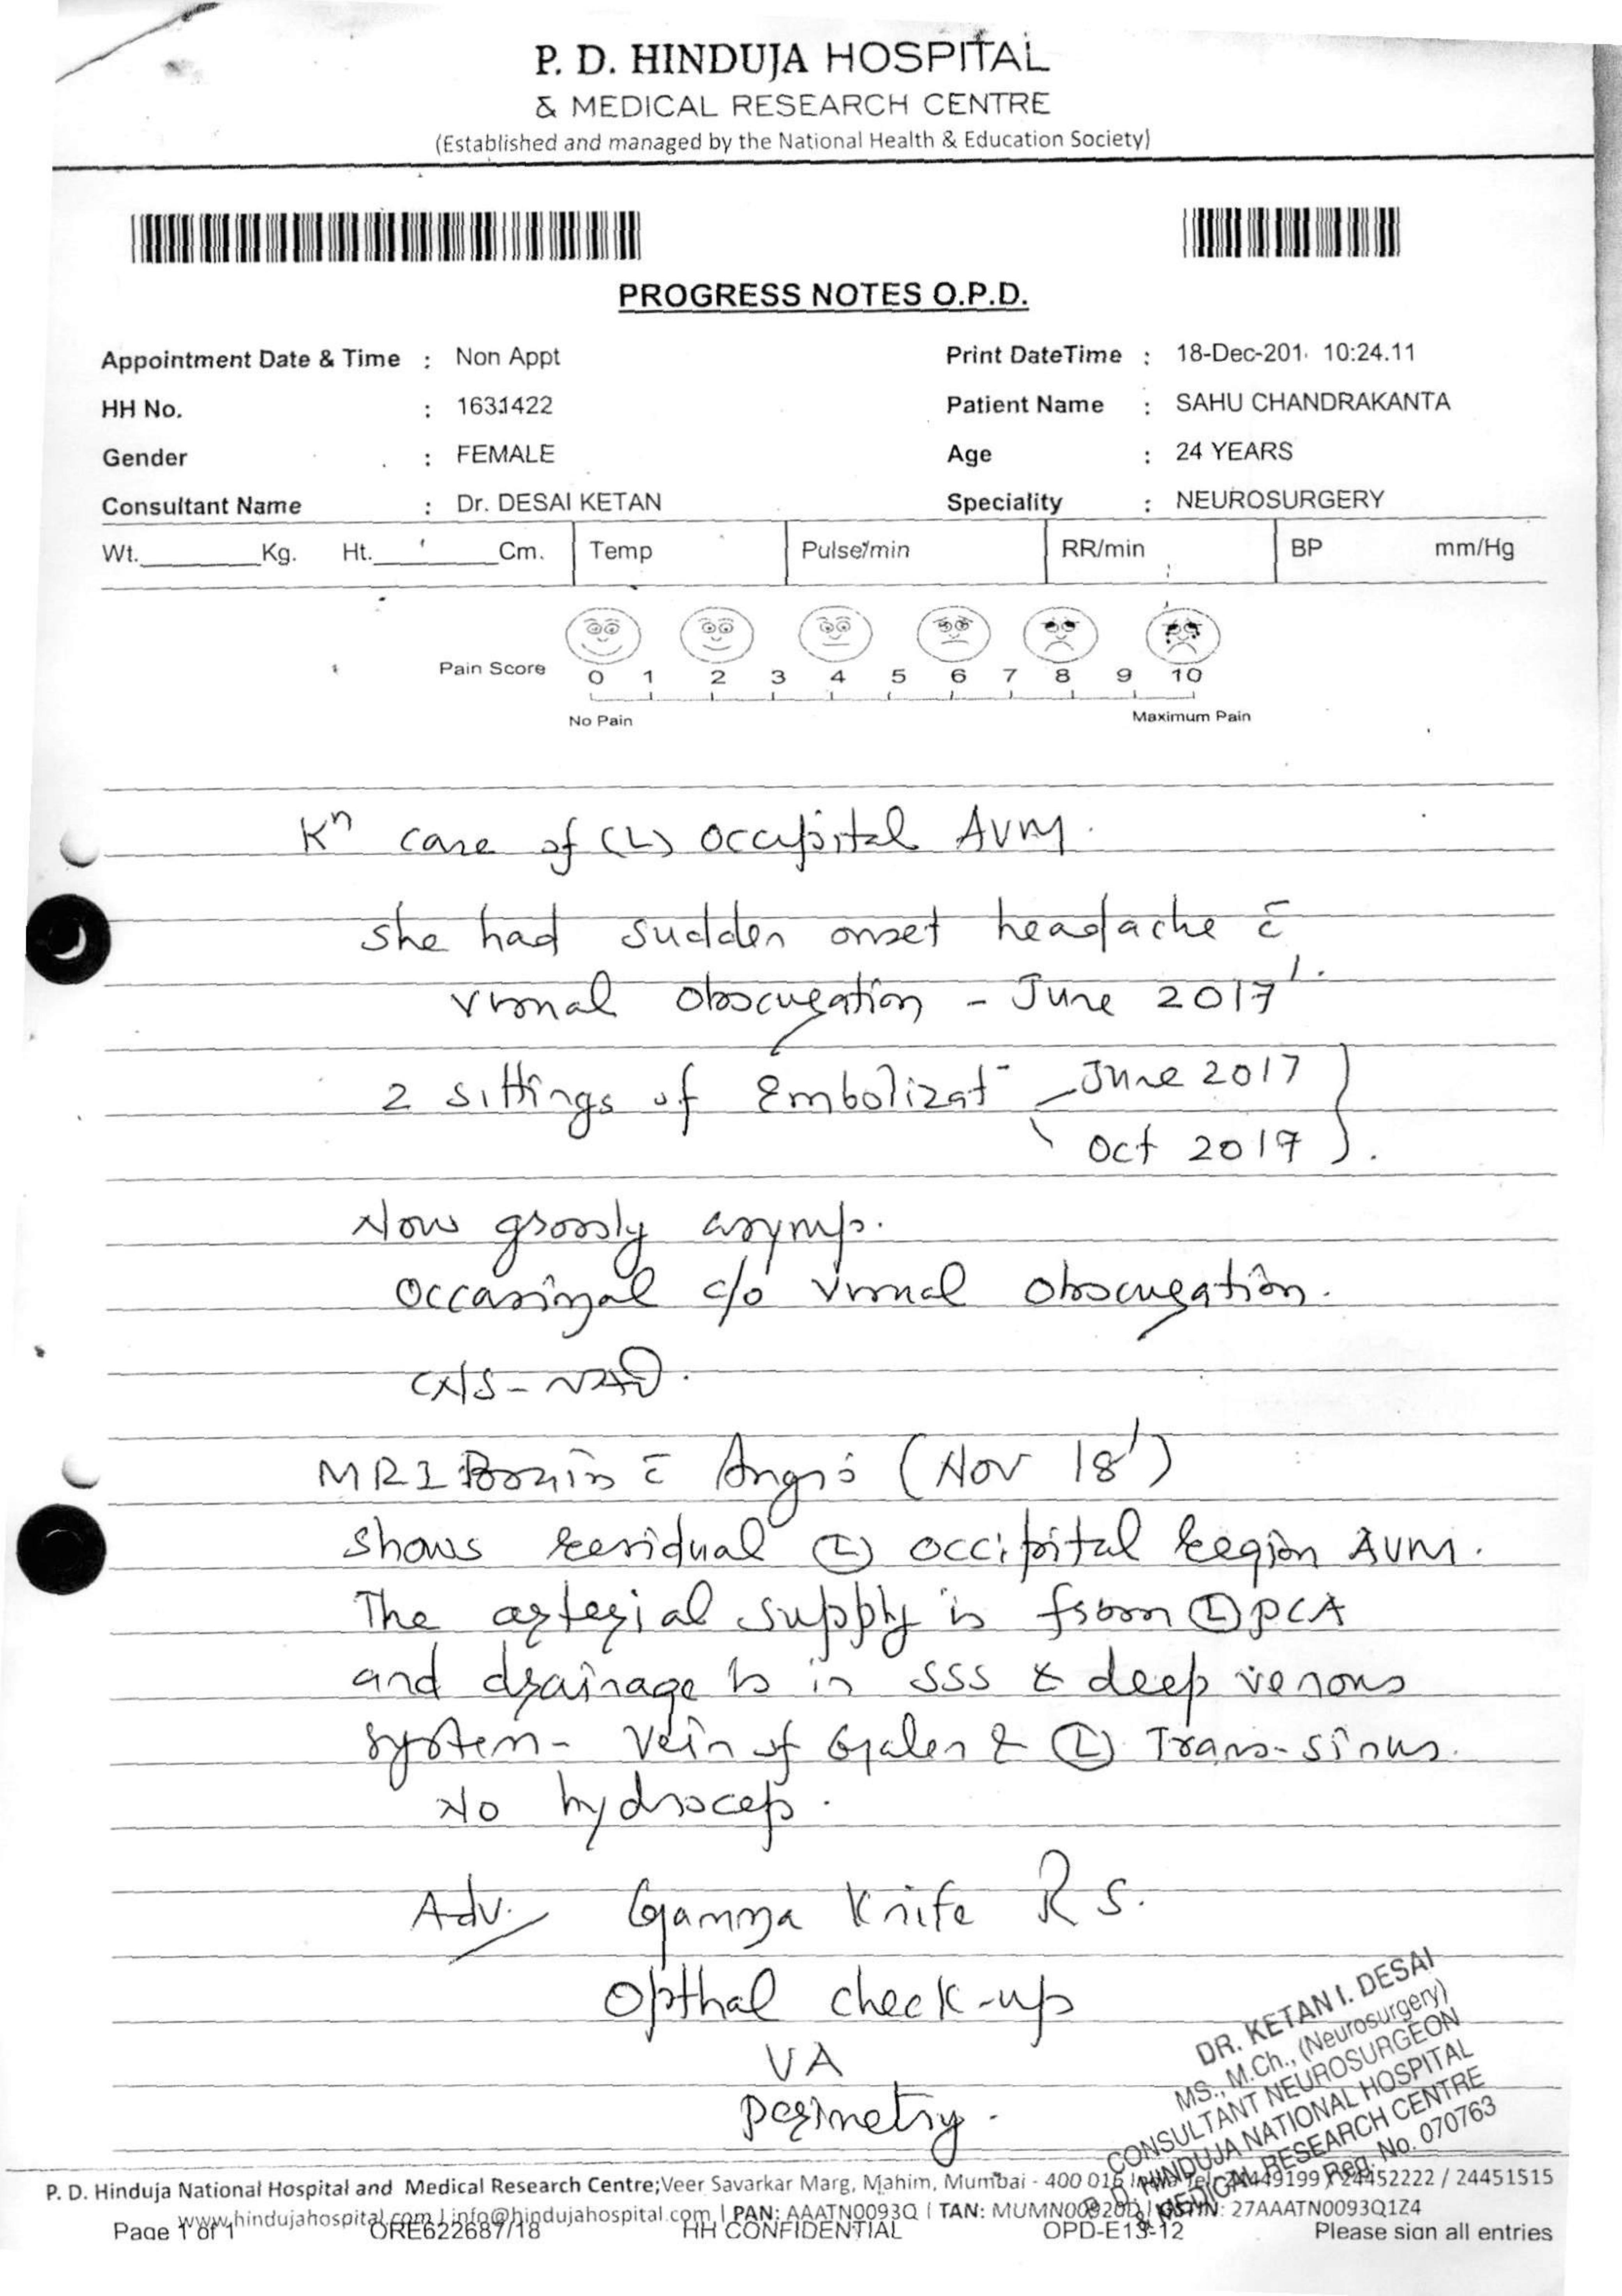 P. D. HINDUJA HOSPITAL
& MEDICAL RESEARCH CENTRE
(Established and managed by the National Health & Education Society)
PROGRESS NOTES O.P.D.
Appointment Date & Time : Non Appt
Print DateTime : 18-Dec-201 10:24.11
HH No. : 1631422
Patient Name : SAHU CHANDRAKANTA
Gender : FEMALE
Age : 24 YEARS
Consultant Name : Dr. DESAI KETAN
Speciality : NEUROSURGERY
Wt. Kg. Ht. Cm. Temp Pulse/min RR/min BP mm/Hg
Pain Score 0 1 2 3 4 5 6 7 8 9 10
No Pain Maximum Pain
Kn case of (L) occipital AVM.
She had sudden onset headache c̄
visual obscuration - June 2017'.
2 sittings of Embolizat- June 2017
Oct 2017
Now grossly asymp.
Occasional c/o visual obscuration.
MRI Brain c̄ Angio (Nov 18')
shows residual (L) occipital region AVM.
The arterial supply is from (L) PCA
and drainage is in SSS & deep venous
system - Vein of Galen & (L) Trans-sinus.
No hydrocep.
Adv. Gamma Knife R S.
Opthal check-up
VA
Perimetry.
DR. KETAN I. DESAI
MS., M.Ch., (Neurosurgery)
CONSULTANT NEUROSURGEON
P. D. HINDUJA NATIONAL HOSPITAL
& MEDICAL RESEARCH CENTRE
Reg. No. 070763
P. D. Hinduja National Hospital and Medical Research Centre;Veer Savarkar Marg, Mahim, Mumbai - 400 016 24449199 / 24452222 / 24451515
www.hindujahospital.com | info@hindujahospital.com | PAN: AAATN0093Q | TAN: 27AAATN0093Q1Z4
Page 1 of 1 ORE622687/18 HH CONFIDENTIAL OPD-E13-12 Please sign all entries